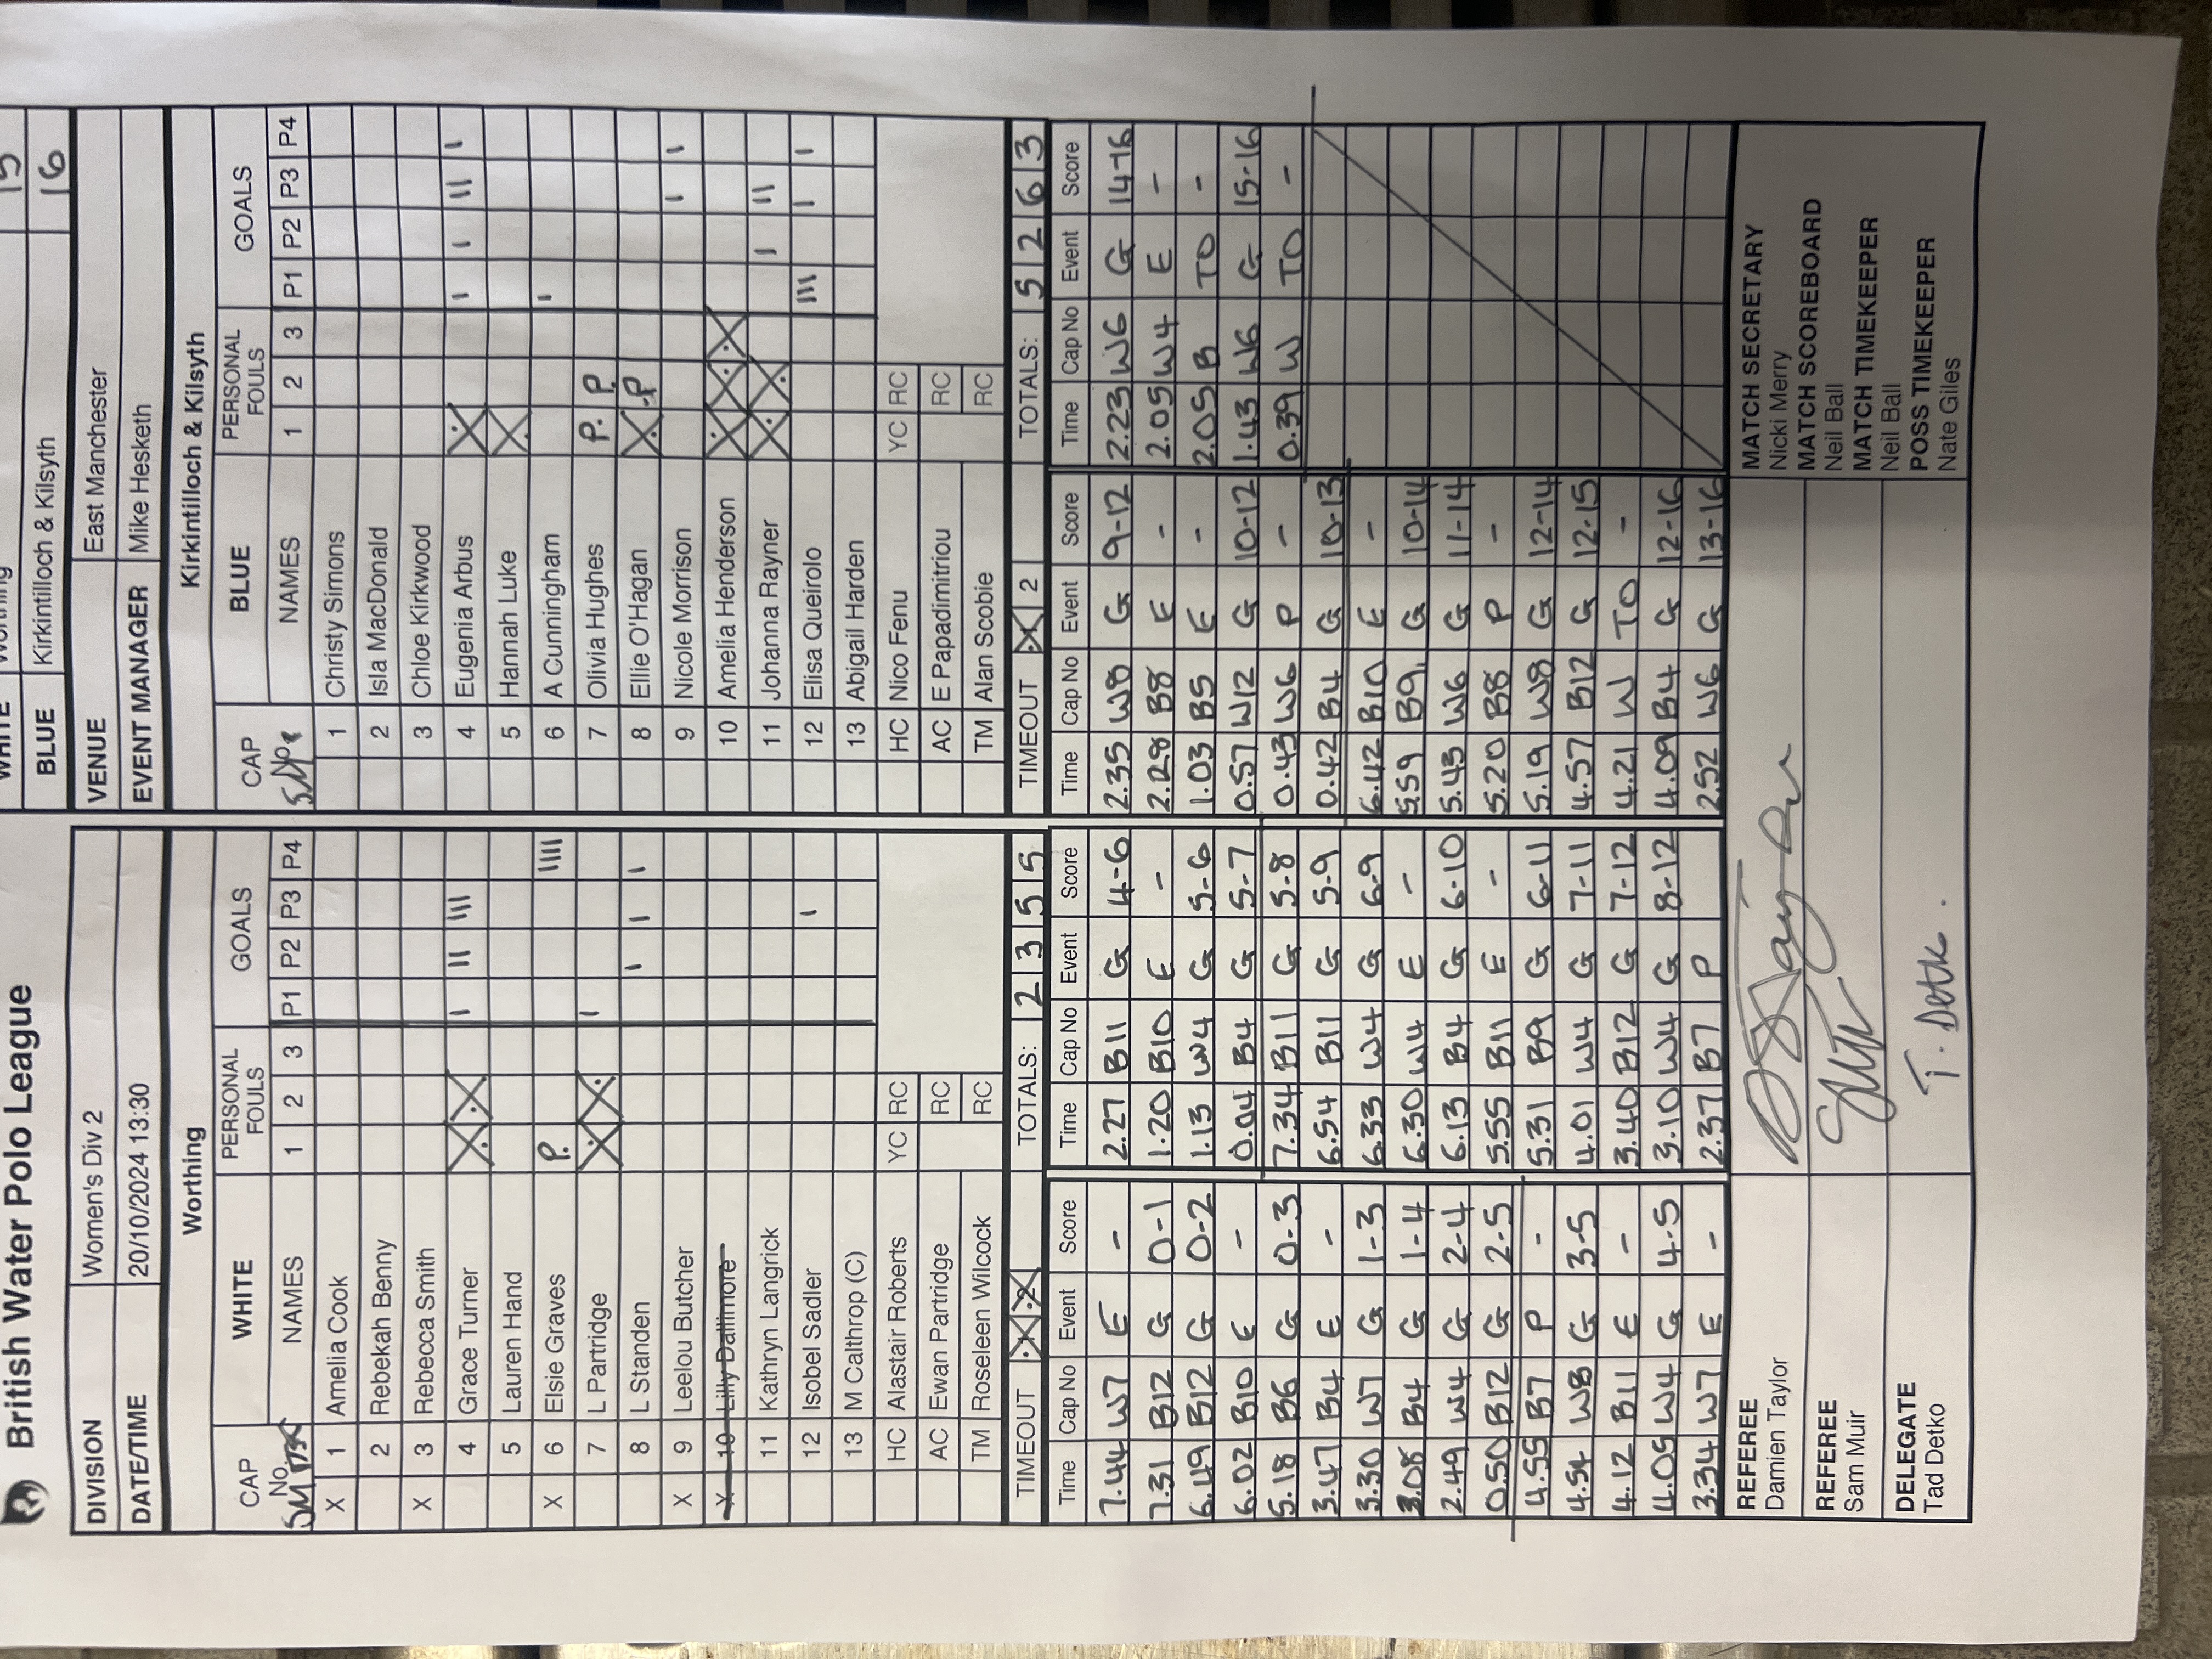 British Water Polo League
DIVISION Women's Div 2
DATE/TIME 20/10/2024 13:30
WHITE Worthing 15
BLUE Kirkintilloch & Kilsyth 16
VENUE East Manchester
EVENT MANAGER Mike Hesketh
Worthing
CAP No. WHITE PERSONAL FOULS GOALS
NAMES 1 2 3 P1 P2 P3 P4
X 1 Amelia Cook
2 Rebekah Benny
X 3 Rebecca Smith
4 Grace Turner X X I II III
5 Lauren Hand
X 6 Elsie Graves P. IIII
7 L Partridge X X I
8 L Standen I I I
X 9 Leelou Butcher
X 10 Lilly Dallimore
11 Kathryn Langrick
12 Isobel Sadler I
13 M Calthrop (C)
HC Alastair Roberts YC RC
AC Ewan Partridge RC
TM Roseleen Wilcock RC
TIMEOUT X X TOTALS: 2 3 5 5
Kirkintilloch & Kilsyth
CAP BLUE PERSONAL FOULS GOALS
NAMES 1 2 3 P1 P2 P3 P4
1 Christy Simons
2 Isla MacDonald
3 Chloe Kirkwood
4 Eugenia Arbus X I I II I
5 Hannah Luke X
6 A Cunningham I
7 Olivia Hughes P. P.
8 Ellie O'Hagan X P
9 Nicole Morrison I I
10 Amelia Henderson X X X
11 Johanna Rayner X X I II
12 Elisa Queirolo III I I
13 Abigail Harden
HC Nico Fenu YC RC
AC E Papadimitriou RC
TM Alan Scobie RC
TIMEOUT X 2 TOTALS: 5 2 6 3
Time Cap No Event Score
7.44 W7 E -
7.31 B12 G 0-1
6.49 B12 G 0-2
6.02 B10 E -
5.18 B6 G 0-3
3.47 B4 E -
3.30 W7 G 1-3
3.08 B4 G 1-4
2.49 W4 G 2-4
0.50 B12 G 2-5
4.55 B7 P -
4.54 W8 G 3-5
4.12 B11 E -
4.05 W4 G 4-5
3.34 W7 E -
Time Cap No Event Score
2.27 B11 G 4-6
1.20 B10 E -
1.13 W4 G 5-6
0.04 B4 G 5-7
7.34 B11 G 5-8
6.54 B11 G 5-9
6.33 W4 G 6-9
6.30 W4 E -
6.13 B4 G 6-10
5.55 B11 E -
5.31 B9 G 6-11
4.01 W4 G 7-11
3.40 B12 G 7-12
3.10 W4 G 8-12
2.37 B7 P
Time Cap No Event Score
2.35 W8 G 9-12
2.28 B8 E -
1.03 B5 E -
0.57 W12 G 10-12
0.43 W6 P -
0.42 B4 G 10-13
6.42 B10 E -
5.59 B9 G 10-14
5.43 W6 G 11-14
5.20 B8 P -
5.19 W8 G 12-14
4.57 B12 G 12-15
4.21 W TO -
4.09 B4 G 12-16
2.52 W6 G 13-16
Time Cap No Event Score
2.23 W6 G 14-16
2.05 W4 E -
2.05 B TO -
1.43 W6 G 15-16
0.39 W TO -
REFEREE
Damien Taylor
REFEREE
Sam Muir
DELEGATE
Tad Detko
T. Detk.
MATCH SECRETARY
Nicki Merry
MATCH SCOREBOARD
Neil Ball
MATCH TIMEKEEPER
Neil Ball
POSS TIMEKEEPER
Nate Giles